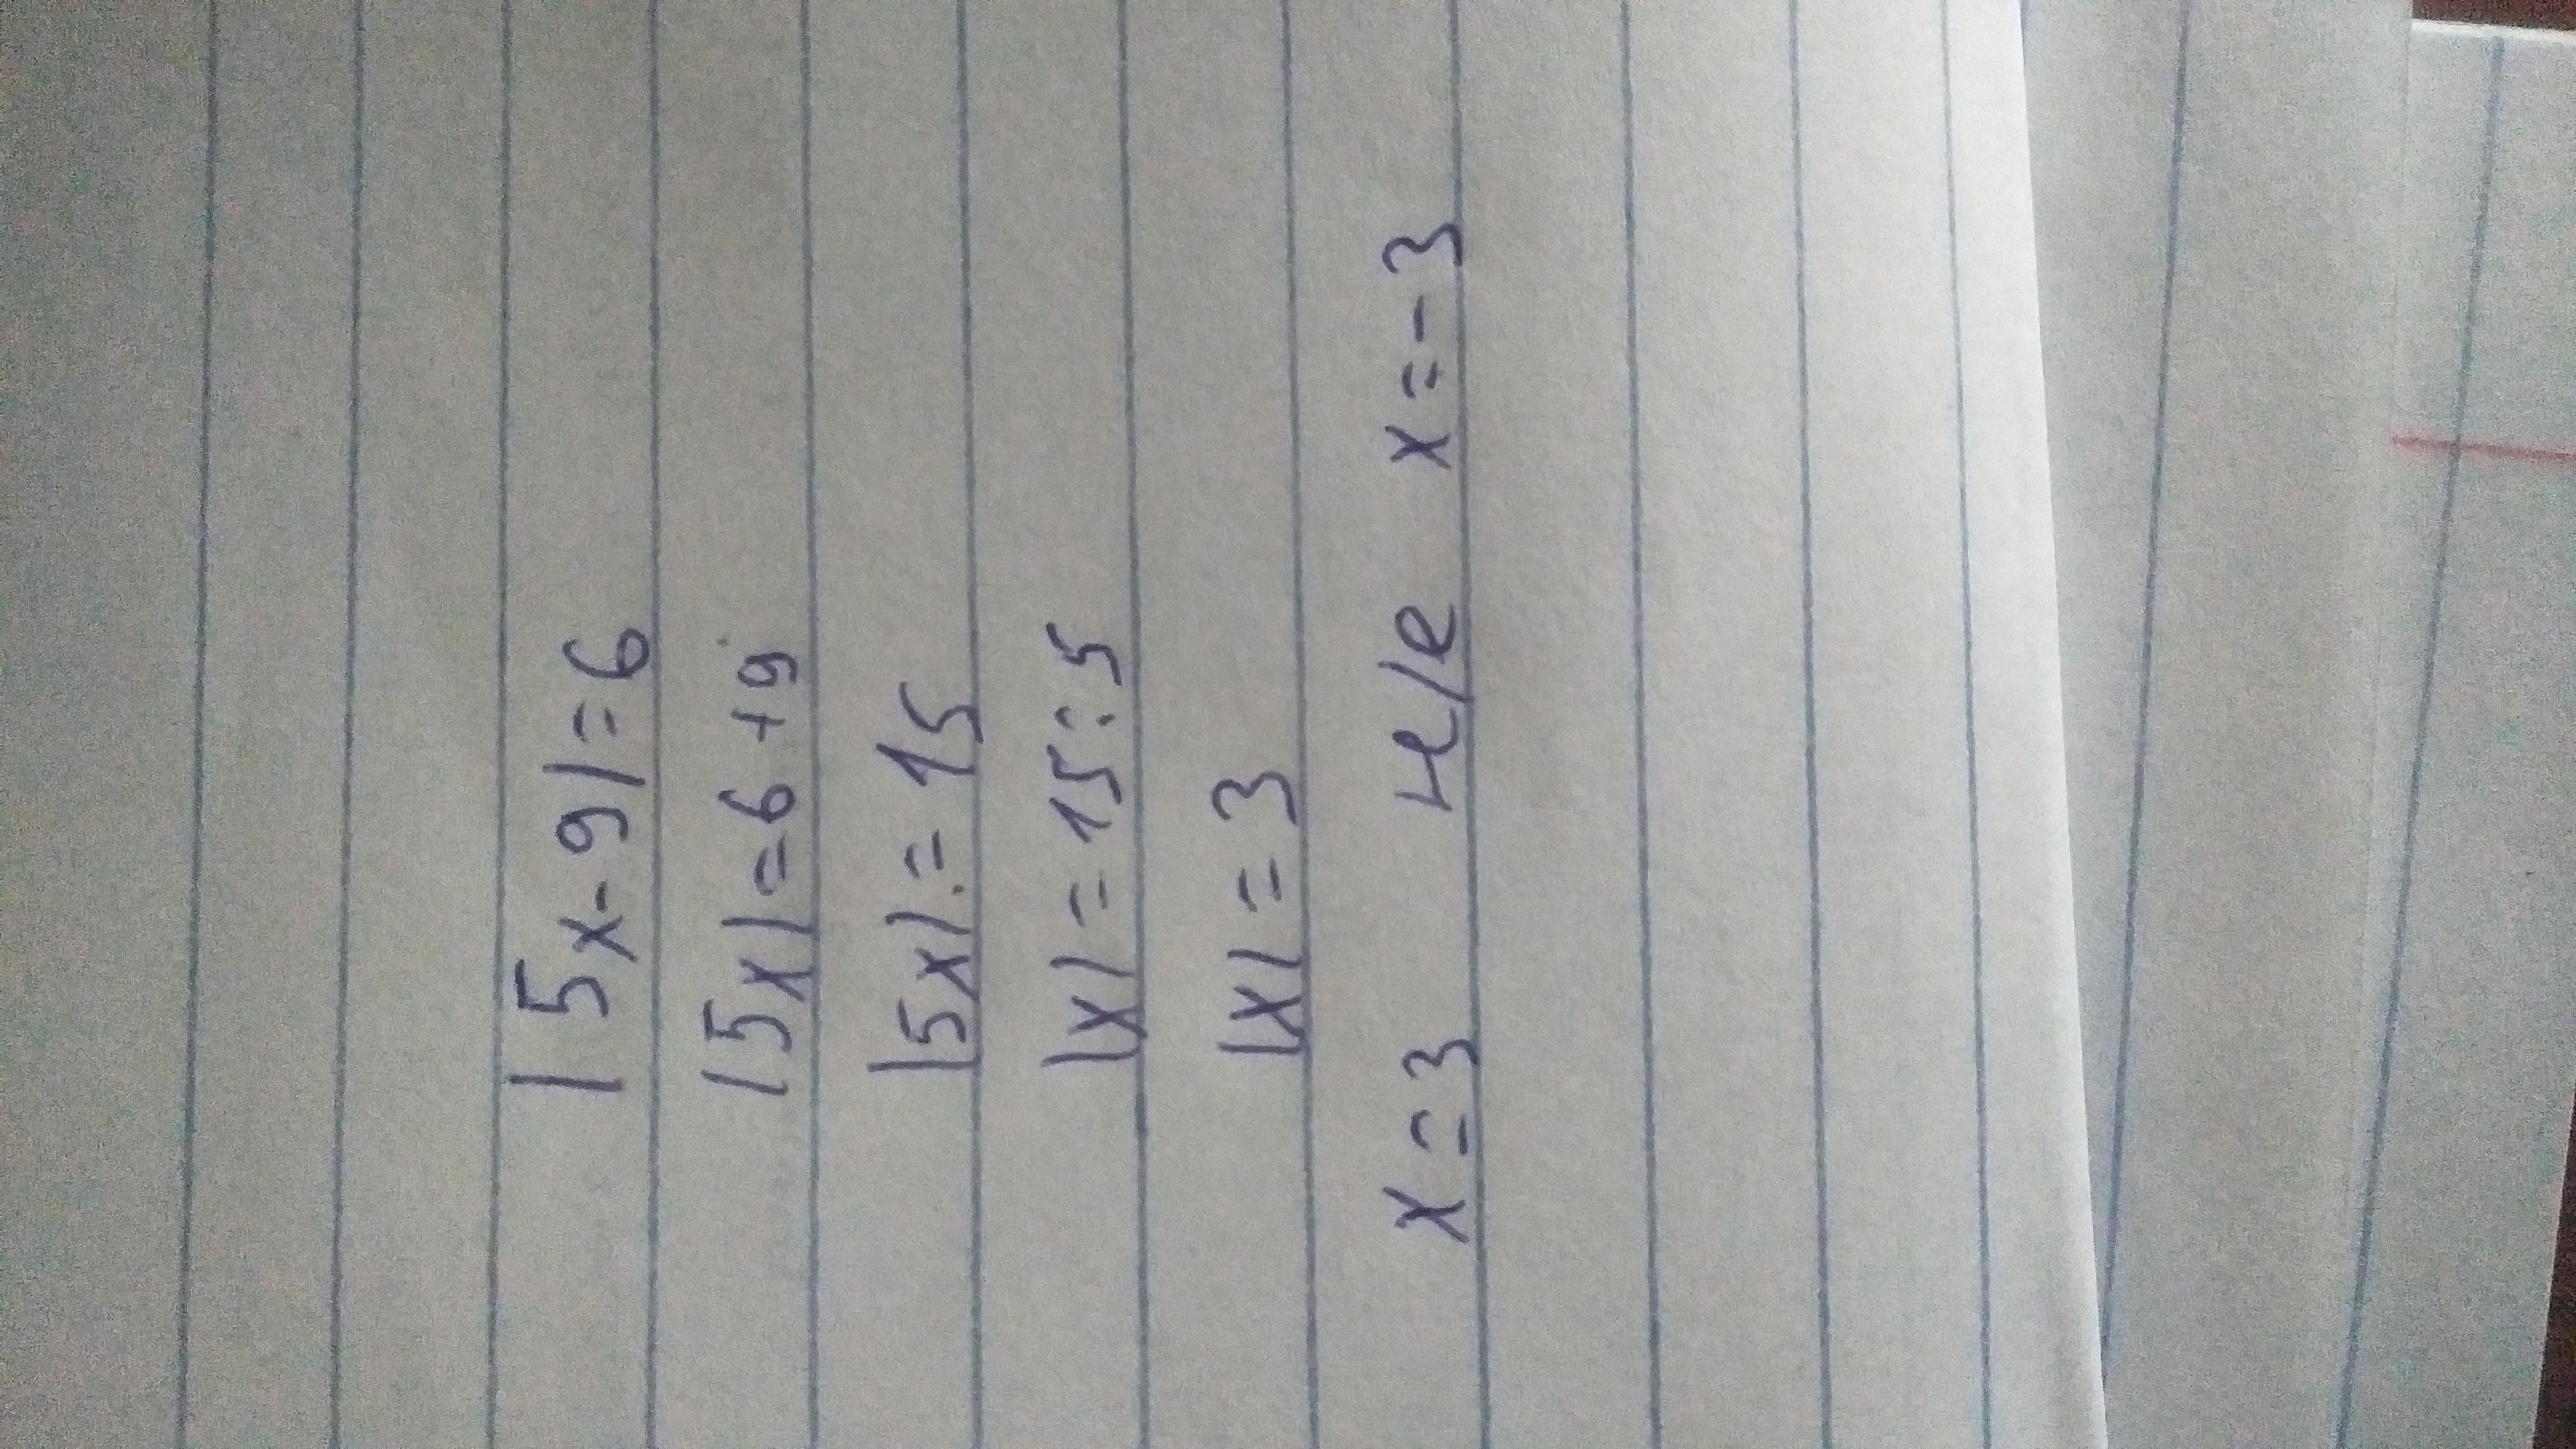 |5x-9|=6
|5x|=6+9
|5x|=15
|x|=15:5
|x|=3
x=3 и/е x=-3